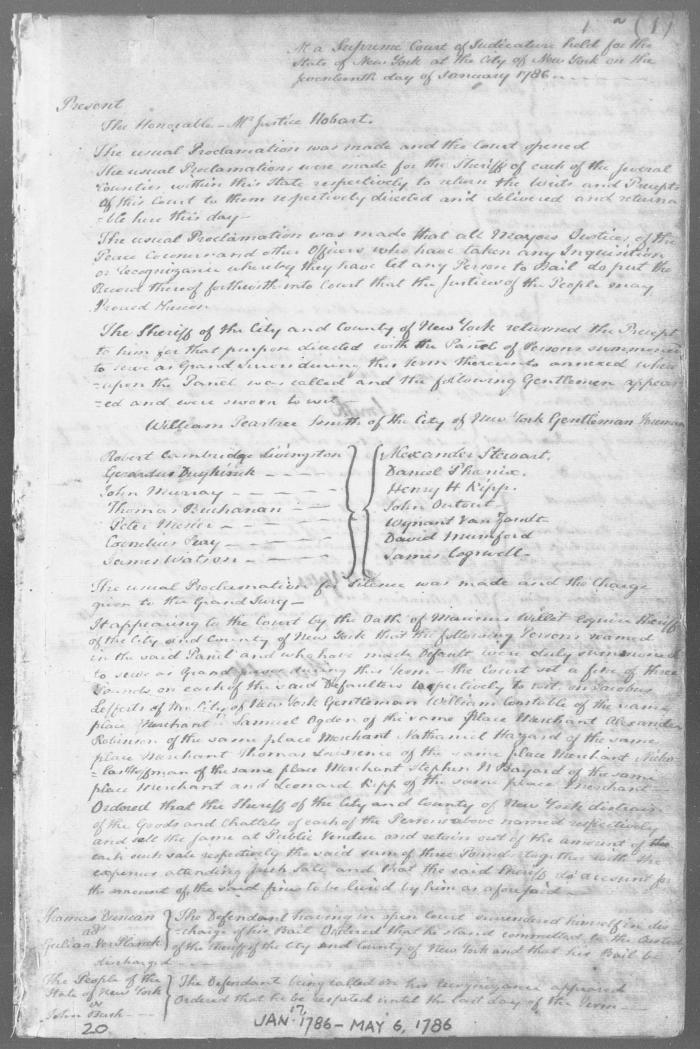 (1)
At a Supreme Court of Judicature held for the
State of New York at the City of New York on the
seventeenth day of January 1786
Present
The Honorable Mr Justice Hobart.
The usual Proclamation was made and the Court opened
The usual Proclamations were made for the Sheriff of each of the several
Counties within this State respectively to return the Writs and Precepts
of this Court to them respectively directed and delivered and returna
=ble here this day
The usual Proclamation was made that all Mayors Justices of the
Peace Coroners and other Officers who have taken any Inquisition
or Recognizance whereby they have let any Person to Bail do put the
Record thereof forthwith into Court that the Justices of the People may
Proceed thereon
The Sheriff of the City and County of New York returned the Precept
to him for that purpose directed with the Panel of Persons summoned
to serve as Grand Jurors during this Term thereunto annexed where
=upon the Panel was called and the following Gentlemen appear
=ed and were sworn to wit
William Peartree Smith of the City of New York Gentleman Foreman
Robert Cambridge Livingston
Gerardus Duykinck
John Murray
Thomas Buchanan
Peter Mesier
Cornelius Ray
James Watson
Alexander Stewart.
Daniel Phenix.
Henry H Kipp.
John Outout
Wynant Van Zandt
David Mumford
James Cogswell
The usual Proclamation for Silence was made and the Charge
given to the Grand Jury
It appearing to the Court by the Oath of Marinus Willet Esquire Sheriff
of the City and County of New York that the following Persons named
in the said Panel and who have made Default were duly summoned
to serve as Grand Jurors during this Term the Court set a fine of three
Pounds on each of the said Defaulters respectively to wit on Jacobus
Lefferts of the City of New York Gentleman William Constable of the same
place Merchant Samuel Ogden of the same Place Merchant Alexander
Robinson of the same place Merchant Nathaniel Hazard of the same
place Merchant Thomas Lawrence of the same place Merchant Nicho
=las Hoffman of the same place Merchant Stephen N Bayard of the same
place Merchant and Leonard Kipp of the same place Merchant
Ordered that the Sheriff of the City and County of New York distrain
of the Goods and Chattels of each of the Persons above named respectively
and sell the same at Public Vendue and retain out of the amount of
each such sale respectively the said sum of three Pounds together with the
expences attending such sale and that the said Sheriff do account for
the amount of the said fines to be levied by him as aforesaid
Thomas Duncan
ads
Gulian Ver Planck
The Defendant having in open Court surrendered himself in dis
=charge of his Bail Ordered that he stand committed to the Custody
of the Sheriff of the City and County of New York and that his Bail be
discharged
The People of the
State of New York
vs
John Bush
The Defendant being called on his recognizance appeared
Ordered that he be respited until the last day of the Term
20
JAN. 17, 1786 – MAY 6, 1786